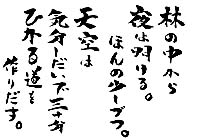 林の中から
夜は明ける。
ほんの少しづつ。
天空は
気分しだいで
ひかる道を
作りだす。